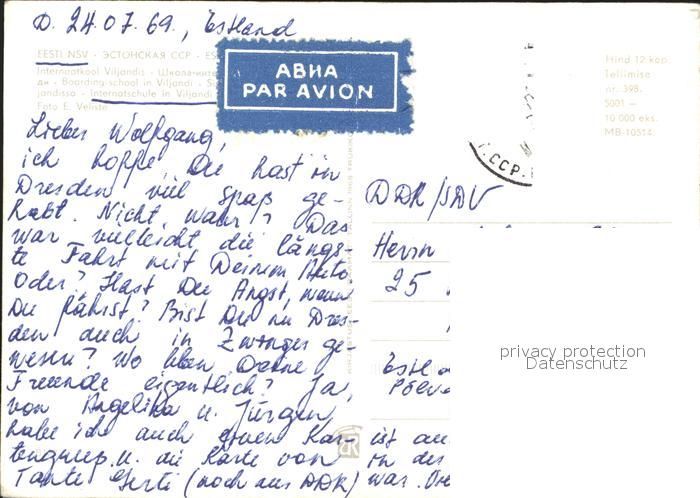 D. 24.07.69., Estland
EESTI NSV - ЭСТОНСКАЯ ССР - ES
Internaatkool Viljandis - Школа-инте
ди - Boarding-school in Viljandi - S
jandissa - Internatschule in Viljandi
Foto E. Veliste
АВИА
PAR AVION
Hind 12 kop.
Tellimise
nr. 398.
5001 —
10 000 eks.
MB-10514.
Г.ССР.
Lieber Wolfgang,
ich hoffe, Du hast in
Dresden viel Spaß ge-
habt. Nicht wahr? Das
war vielleicht die längs-
te Fahrt mit Deinem Auto
oder? Hast Du Angst, wenn
Du fährst? Bist Du in Dres-
den auch in Zwinger ge-
wesen? Wo leben Deine
Freunde eigentlich? Ja,
von Angelika u. Jürgen
habe ich auch einen Kar-
tengruß u. die Karte von
Tante Gerti (noch aus DDR)
DDR/SDV
Herrn
25
Estl
ist au
in der
war. Die
privacy protection
Datenschutz